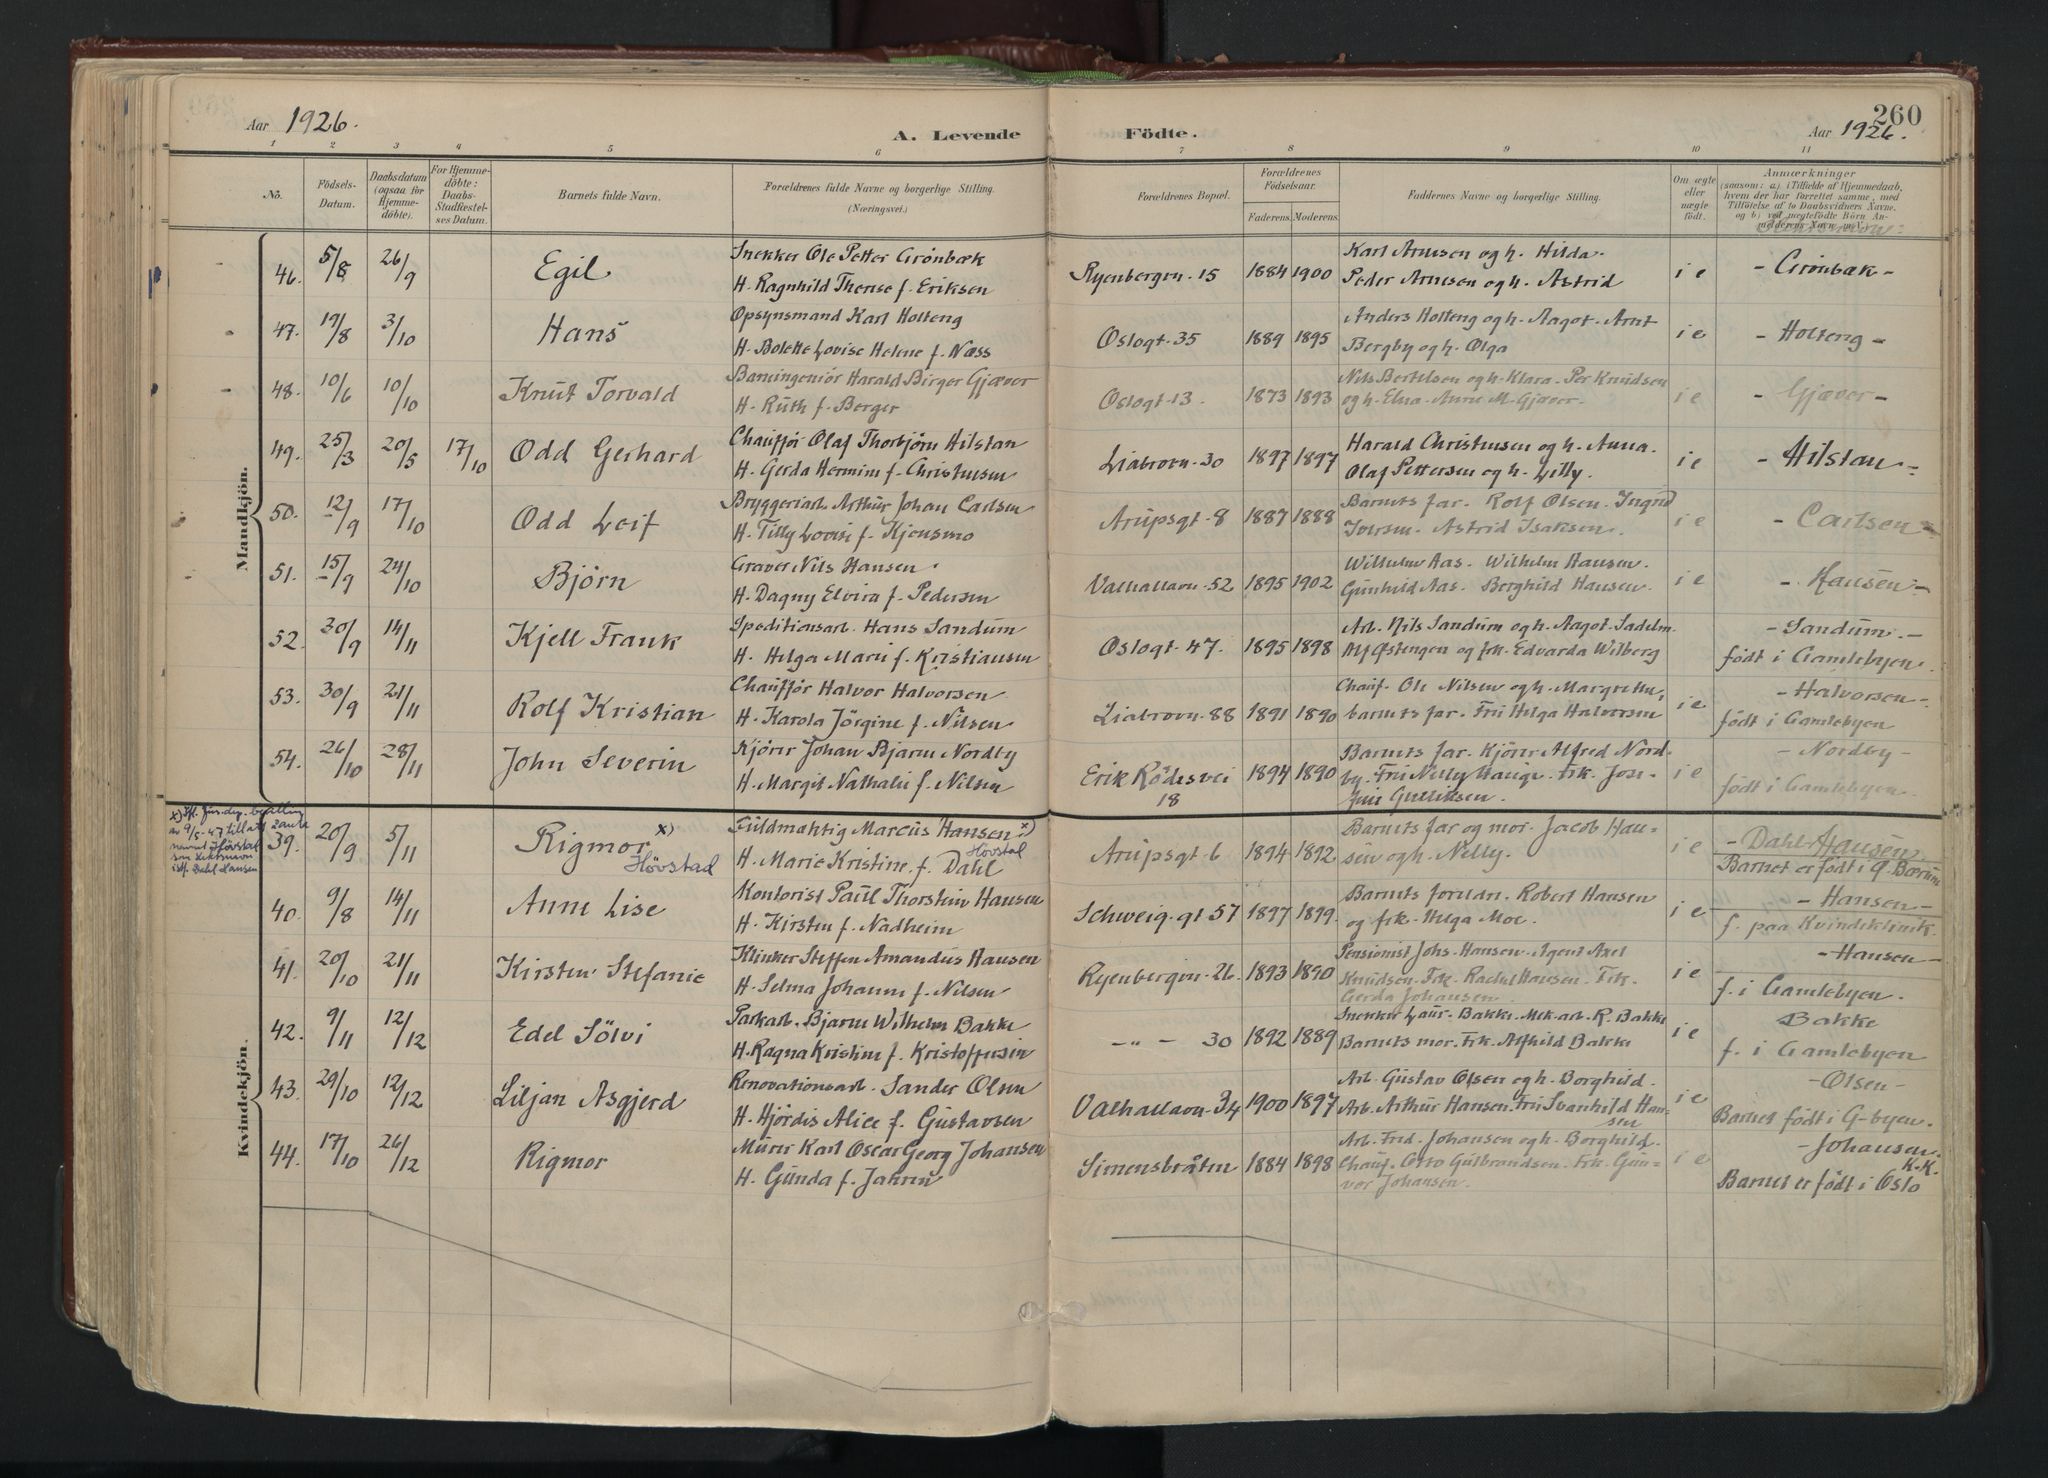 260
Aar 1926.
A. Levende Födte.
Aar 1926.
1 2 3 4 5 6 7 8 9 10 11
No. Födsels-Datum. Daabsdatum (ogsaa for Hjemme-döbte). For Hjemme-döbte: Daabs-Stadfæstel-ses Datum. Barnets fulde Navn. Forældrenes fulde Navne og borgerlige Stilling. (Næringsvei.) Forældrenes Bopæl. Forældrenes Födselsaar. Faderens. Moderens. Faddernes Navne og borgerlige Stilling. Om ægte eller uægte födt. Anmærkninger (saasom: a) i Tilfælde af Hjemmedaab, hvem der har forrettet samme, med Tilföielse af to Daabsvidners Navne, og b) ved uegtefödte Börn An-melderens Navn m.V.)
Mandkjön.
46. 5/8 26/9 Egil Snekker Ole Petter Grönbæk Ryenbergvn. 15 1884 1900 Karl Arnesen og h. Hilda. i e - Grönbæk -
H. Ragnhild Therese f. Eriksen Peder Arnesen og h. Astrid
47. 19/8 3/10 Hans Opsynsmand Karl Holteng Oslogt. 35 1889 1895 Anders Holteng og h. Aagot. Arnt i e - Holteng -
H. Bolette Lovise Helene f. Næss Bergby og h. Olga
48. 10/6 10/10 Knut Torvald Baningeniör Harald Birger Gjæver Oslogt. 13. 1873 1893 Nils Bertelsen og h. Klara. Per Knudsen i e - Gjæver -
H. Ruth f. Berger og h. Elna. Anne M. Gjæver.
49. 25/3 20/5 17/10 Odd Gerhard Chaufför Olaf Thorbjörn Hilstan Liabrovn. 30 1897 1897 Harald Christensen og h. Anna. i e - Hilstan -
H. Gerda Hermine f. Christensen Olaf Pettersen og h. Lilly.
50. 12/9 17/10 Odd Leif Bryggeriarb. Arthur Johan Carlsen Arupsgt. 8 1887 1888 Barnets far. Rolf Olsen. Ingrid i e - Carlsen -
H. Tilly Lovise f. Kjensmo Iversen. Astrid Isaksen.
51. 15/9 24/10 Björn Graver Nils Hansen. Valhallavn. 52 1895 1902 Wilhelm Aas. Wilhelm Hansen. i e - Hansen -
H. Dagny Elvira f. Pedersen Gunhild Aas. Berghild Hansen.
52. 30/9 14/11 Kjell Frank Speditionsarb. Hans Sandum Oslogt. 47. 1895 1898 Arb. Nils Sandum og h. Aagot. Sadelm. i e - Sandum. -
H. Helga Marie f. Kristiansen Alf Östengen og frk. Edvarda Wilberg födt i Gamlebyen.
53. 30/9 21/11 Rolf Kristian Chaufför Halvor Halvorsen Liabrovn. 88 1891 1890 Chauf. Ole Nilsen og h. Margrethe, i e - Halvorsen -
H. Karola Jörgine f. Nilsen barnets far. Fru Helga Halvorsen födt i Gamlebyen
54. 26/10 28/11 John Severin Kjörer Johan Bjarne Nordby Erik Rödesvei 18 1894 1890 Barnets far. Kjörer Alfred Nord- i e - Nordby -
H. Margit Nathalie f. Nilsen by. Fru Nelly Hauge. Frk. Jose- födt i Gamlebyen.
fine Gulliksen.
Kvindekjön.
x) Ifl. Jus. dep. bevilling
av 9/5-47 tillatt
navnet Hövstad
som slektsnavn
istf. Dahl Hansen
39. 20/9 5/11 Rigmor x) Fuldmaktig Marcus Hansen x) Arupsgt. 6 1894 1892 Barnets far og mor. Jacob Han- i e - Dahl-Hansen.
Hövstad Hövstad
H. Marie Kristine f. Dahl sen og h. Nelly. Barnet er födt i Ö. Bærum
40. 9/8 14/11 Anne Lise Kontorist Paul Thorstein Hansen Schweig. gt 57 1897 1899. Barnets foreldre. Robert Hansen i e - Hansen -
H. Kirsten f. Nadheim og frk. Helga Moe. f. paa Kvindeklinik.
41. 20/10 21/11 Kirsten Stefanie Klinker Steffen Amandus Hansen Ryenbergvn. 26. 1893 1890 Pensionist Johs. Hansen. Agent Axel i e - Hansen -
H. Selma Johanne f. Nilsen Knudsen. Frk. Rachel Hansen. Frk. f. i Gamlebyen.
Gerda Johansen.
42. 9/11 12/12 Edel Sölvi Parkarb. Bjarne Wilhelm Bakke - " - 30 1892 1889 Snekker Laur. Bakke. Mek. arb. R. Bakke i e Bakke
H. Ragna Kristine f. Kristoffersen Barnets mor. Frk. Alfhild Bakke f. i Gamlebyen
43. 29/10 12/12 Liljan Asgjerd Renovationsarb. Sander Olsen Valhallavn. 34 1900 1897 Arb. Gustav Olsen og h. Borghild. i e - Olsen -
H. Hjördis Alice f. Gustavsen Arb. Arthur Hansen. Fru Svanhild Han-sen Barnet födt i G-byen.
44. 17/10 26/12 Rigmor Murer Karl Oscar Georg Johansen Simensbråten 1884 1898 Arb. Fred. Johansen og h. Borghild. i e - Johansen.
H. Gunda f. Jahren Chauf. Otto Gulbrandsen. Frk. Gun- K.K.
vor Johansen. Barnet er födt i Oslo